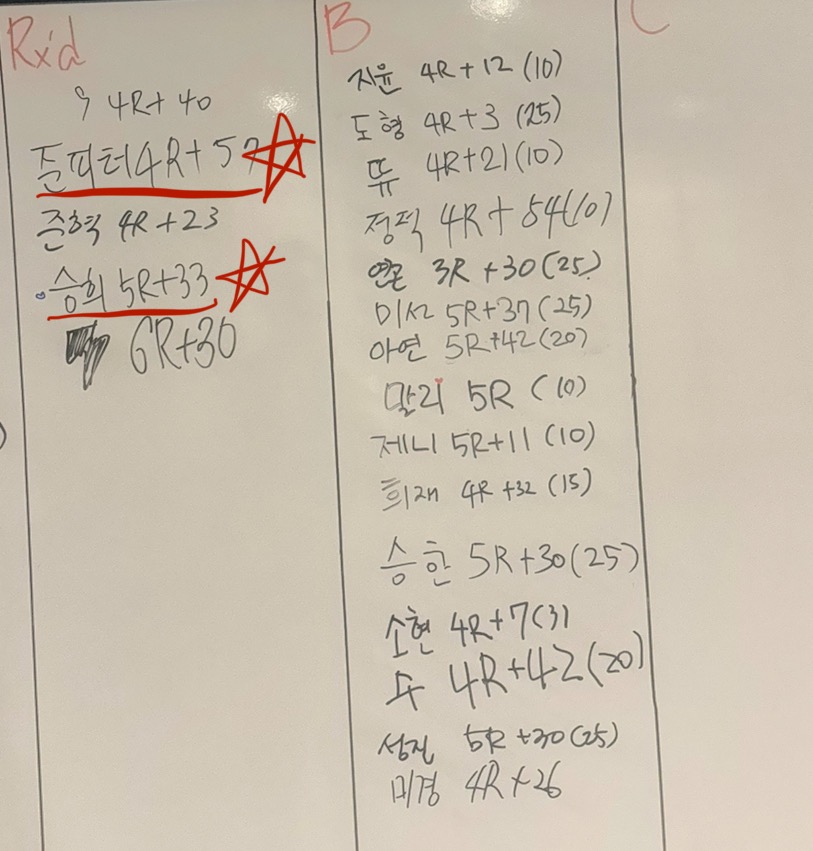 Rx'd
우 4R+40
준피터 4R+57
준혁 4R+23
승희 5R+33
6R+30
B
지윤 4R+12 (10)
도형 4R+3 (25)
쀼 4R+21 (10)
정적 4R+54 (10)
연폰 3R+30 (25)
미선 5R+37 (25)
아연 5R+42 (20)
말리 5R (10)
제니 5R+11 (10)
희재 4R+32 (15)
승한 5R+30 (25)
소현 4R+7 (3)
수 4R+42 (20)
성진 5R+30 (25)
미경 4R+26
C